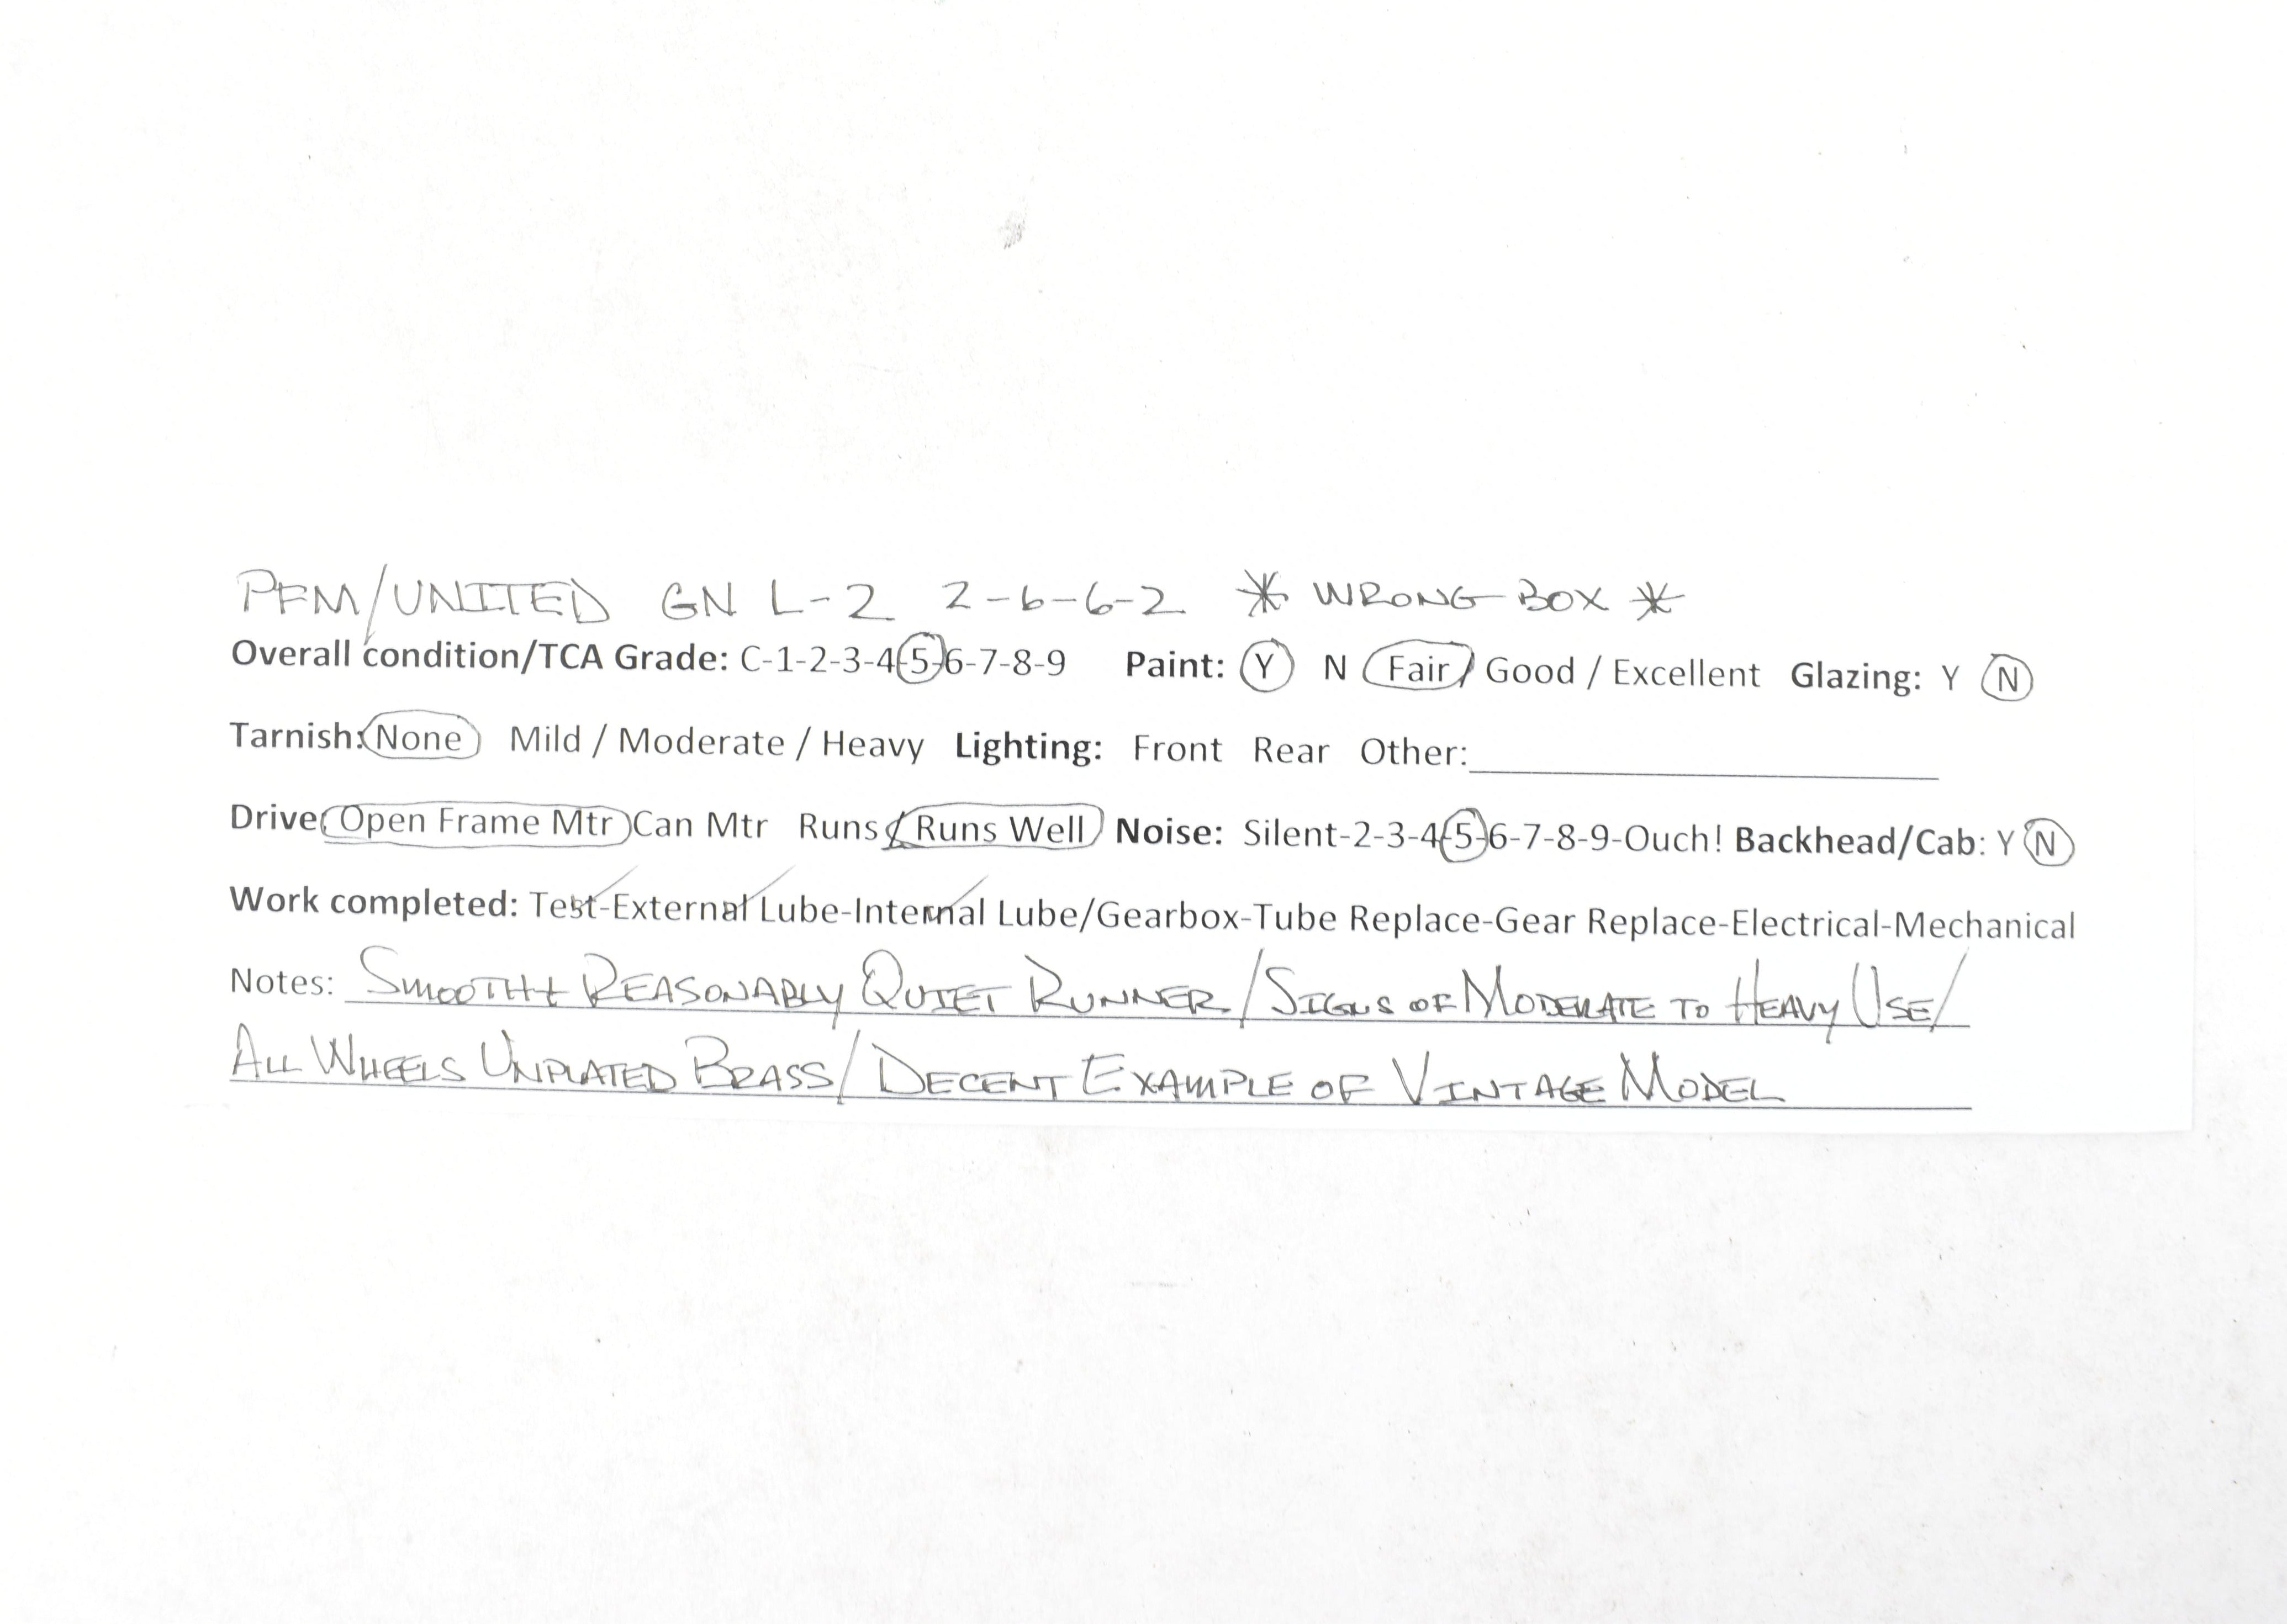 PFM/UNITED GN L-2 2-6-6-2 * WRONG BOX *
Overall condition/TCA Grade: C-1-2-3-4-5-6-7-8-9 Paint: Y N Fair / Good / Excellent Glazing: Y N
Tarnish: None Mild / Moderate / Heavy Lighting: Front Rear Other:
Drive: Open Frame Mtr Can Mtr Runs / Runs Well Noise: Silent-2-3-4-5-6-7-8-9-Ouch! Backhead/Cab: Y N
Work completed: Test-External Lube-Internal Lube/Gearbox-Tube Replace-Gear Replace-Electrical-Mechanical
Notes: SMOOTH + REASONABLY QUIET RUNNER/SIGNS OF MODERATE TO HEAVY USE/
ALL WHEELS UNPLATED BRASS/DECENT EXAMPLE OF VINTAGE MODEL